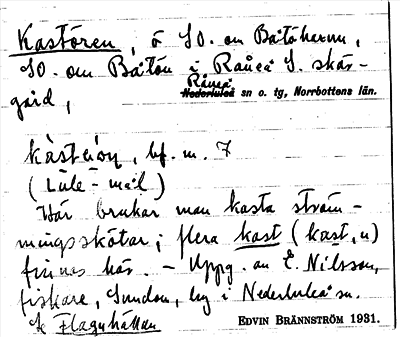 Kastören, ö SO. om Båtöharun,
SO. om Båtön i Råneå S. skär-
gård,
Råneå
Nederluleå sn o. tg, Norrbottens län.
bf. m. 7
(Lule-mål)
Här brukar man kasta ström-
mingsskötar; flera kast (kast, n)
finnas här. – Uppg. av E. Nilsson,
fiskare, Sundom, by i Nederluleå sn.
Jfr Flaguhällan
EDVIN BRÄNNSTRÖM 1931.